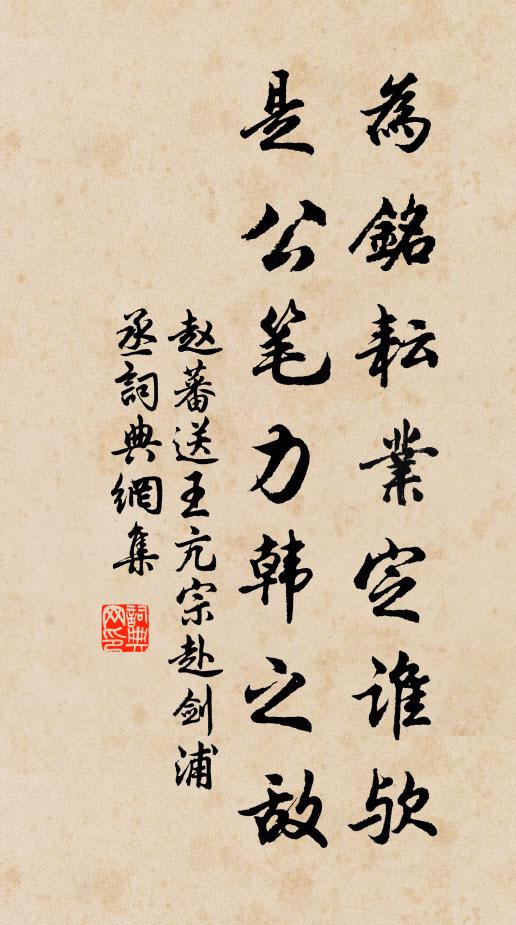 為銘耘業定誰欤
是公笔力韩之敌
赵蕃送王亢宗赴剑浦
丞詞典網集
詞典网印